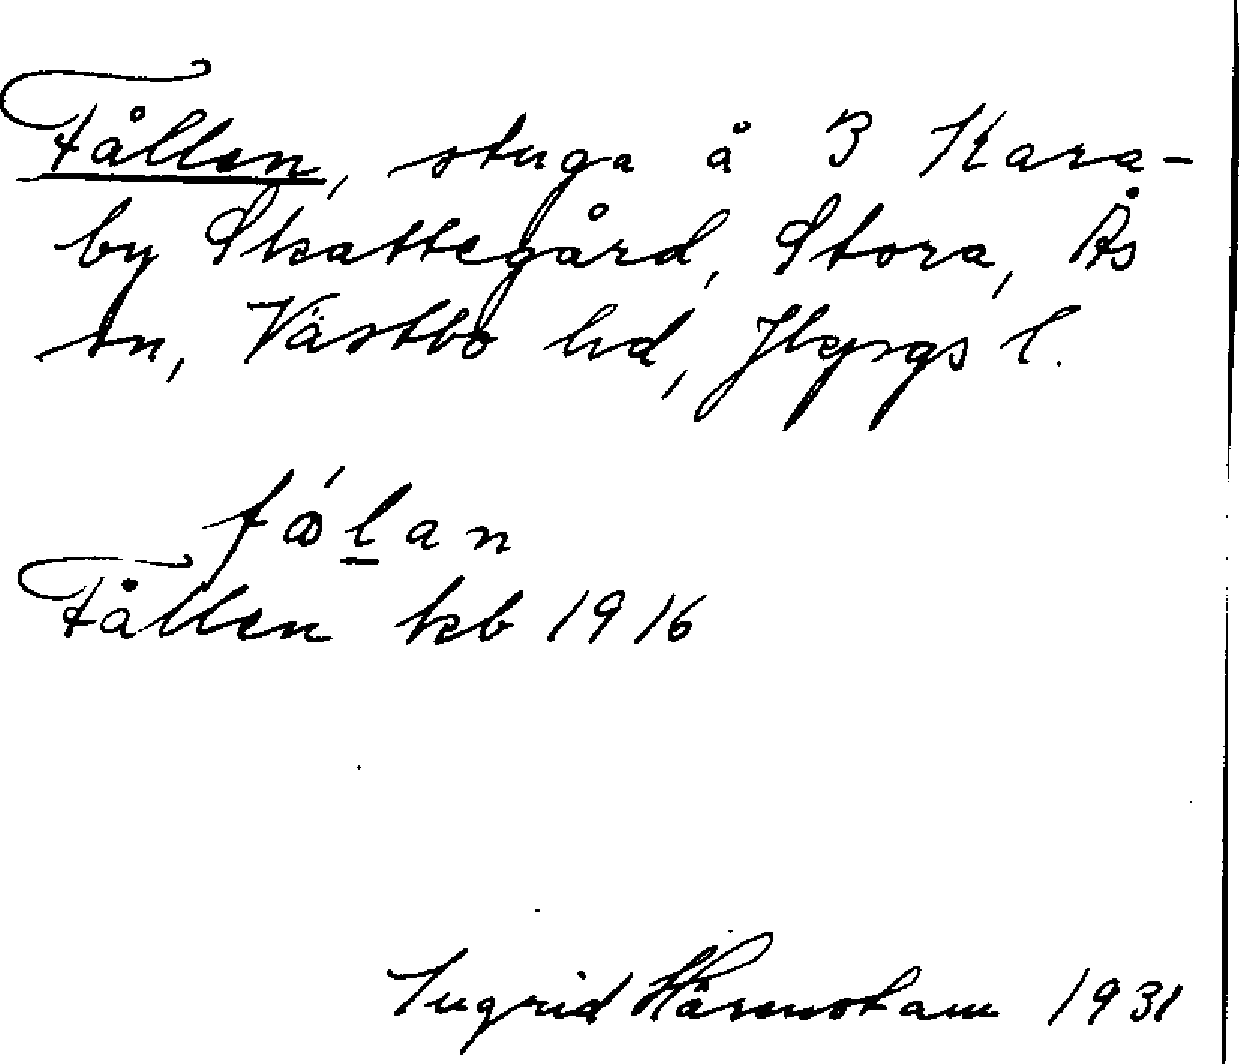 Fållen, stuga å 3 Kara-
by Skattegård, Stora, Ås
sn, Västbo hd, Jkpgs l.
fålan
Fållen kb 1916
Ingrid Härenstam 1931